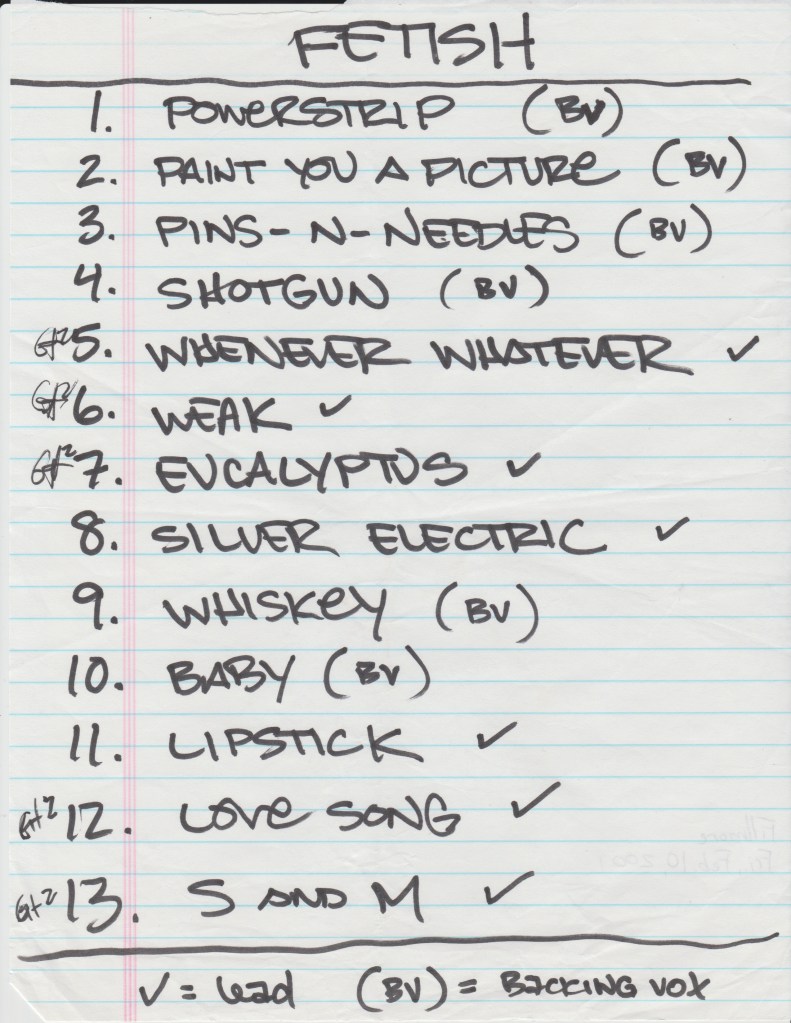 FETISH
1. POWERSTRIP (BV)
2. PAINT YOU A PICTURE (BV)
3. PINS-N-NEEDLES (BV)
4. SHOTGUN (BV)
Gt2 5. WHENEVER WHATEVER ✓
Gt2 6. WEAK ✓
Gt2 7. EUCALYPTUS ✓
8. SILVER ELECTRIC ✓
9. WHISKEY (BV)
10. BABY (BV)
11. LIPSTICK ✓
Gt2 12. LOVE SONG ✓
Gt2 13. S AND M ✓
✓ = lead (BV) = BACKING VOX